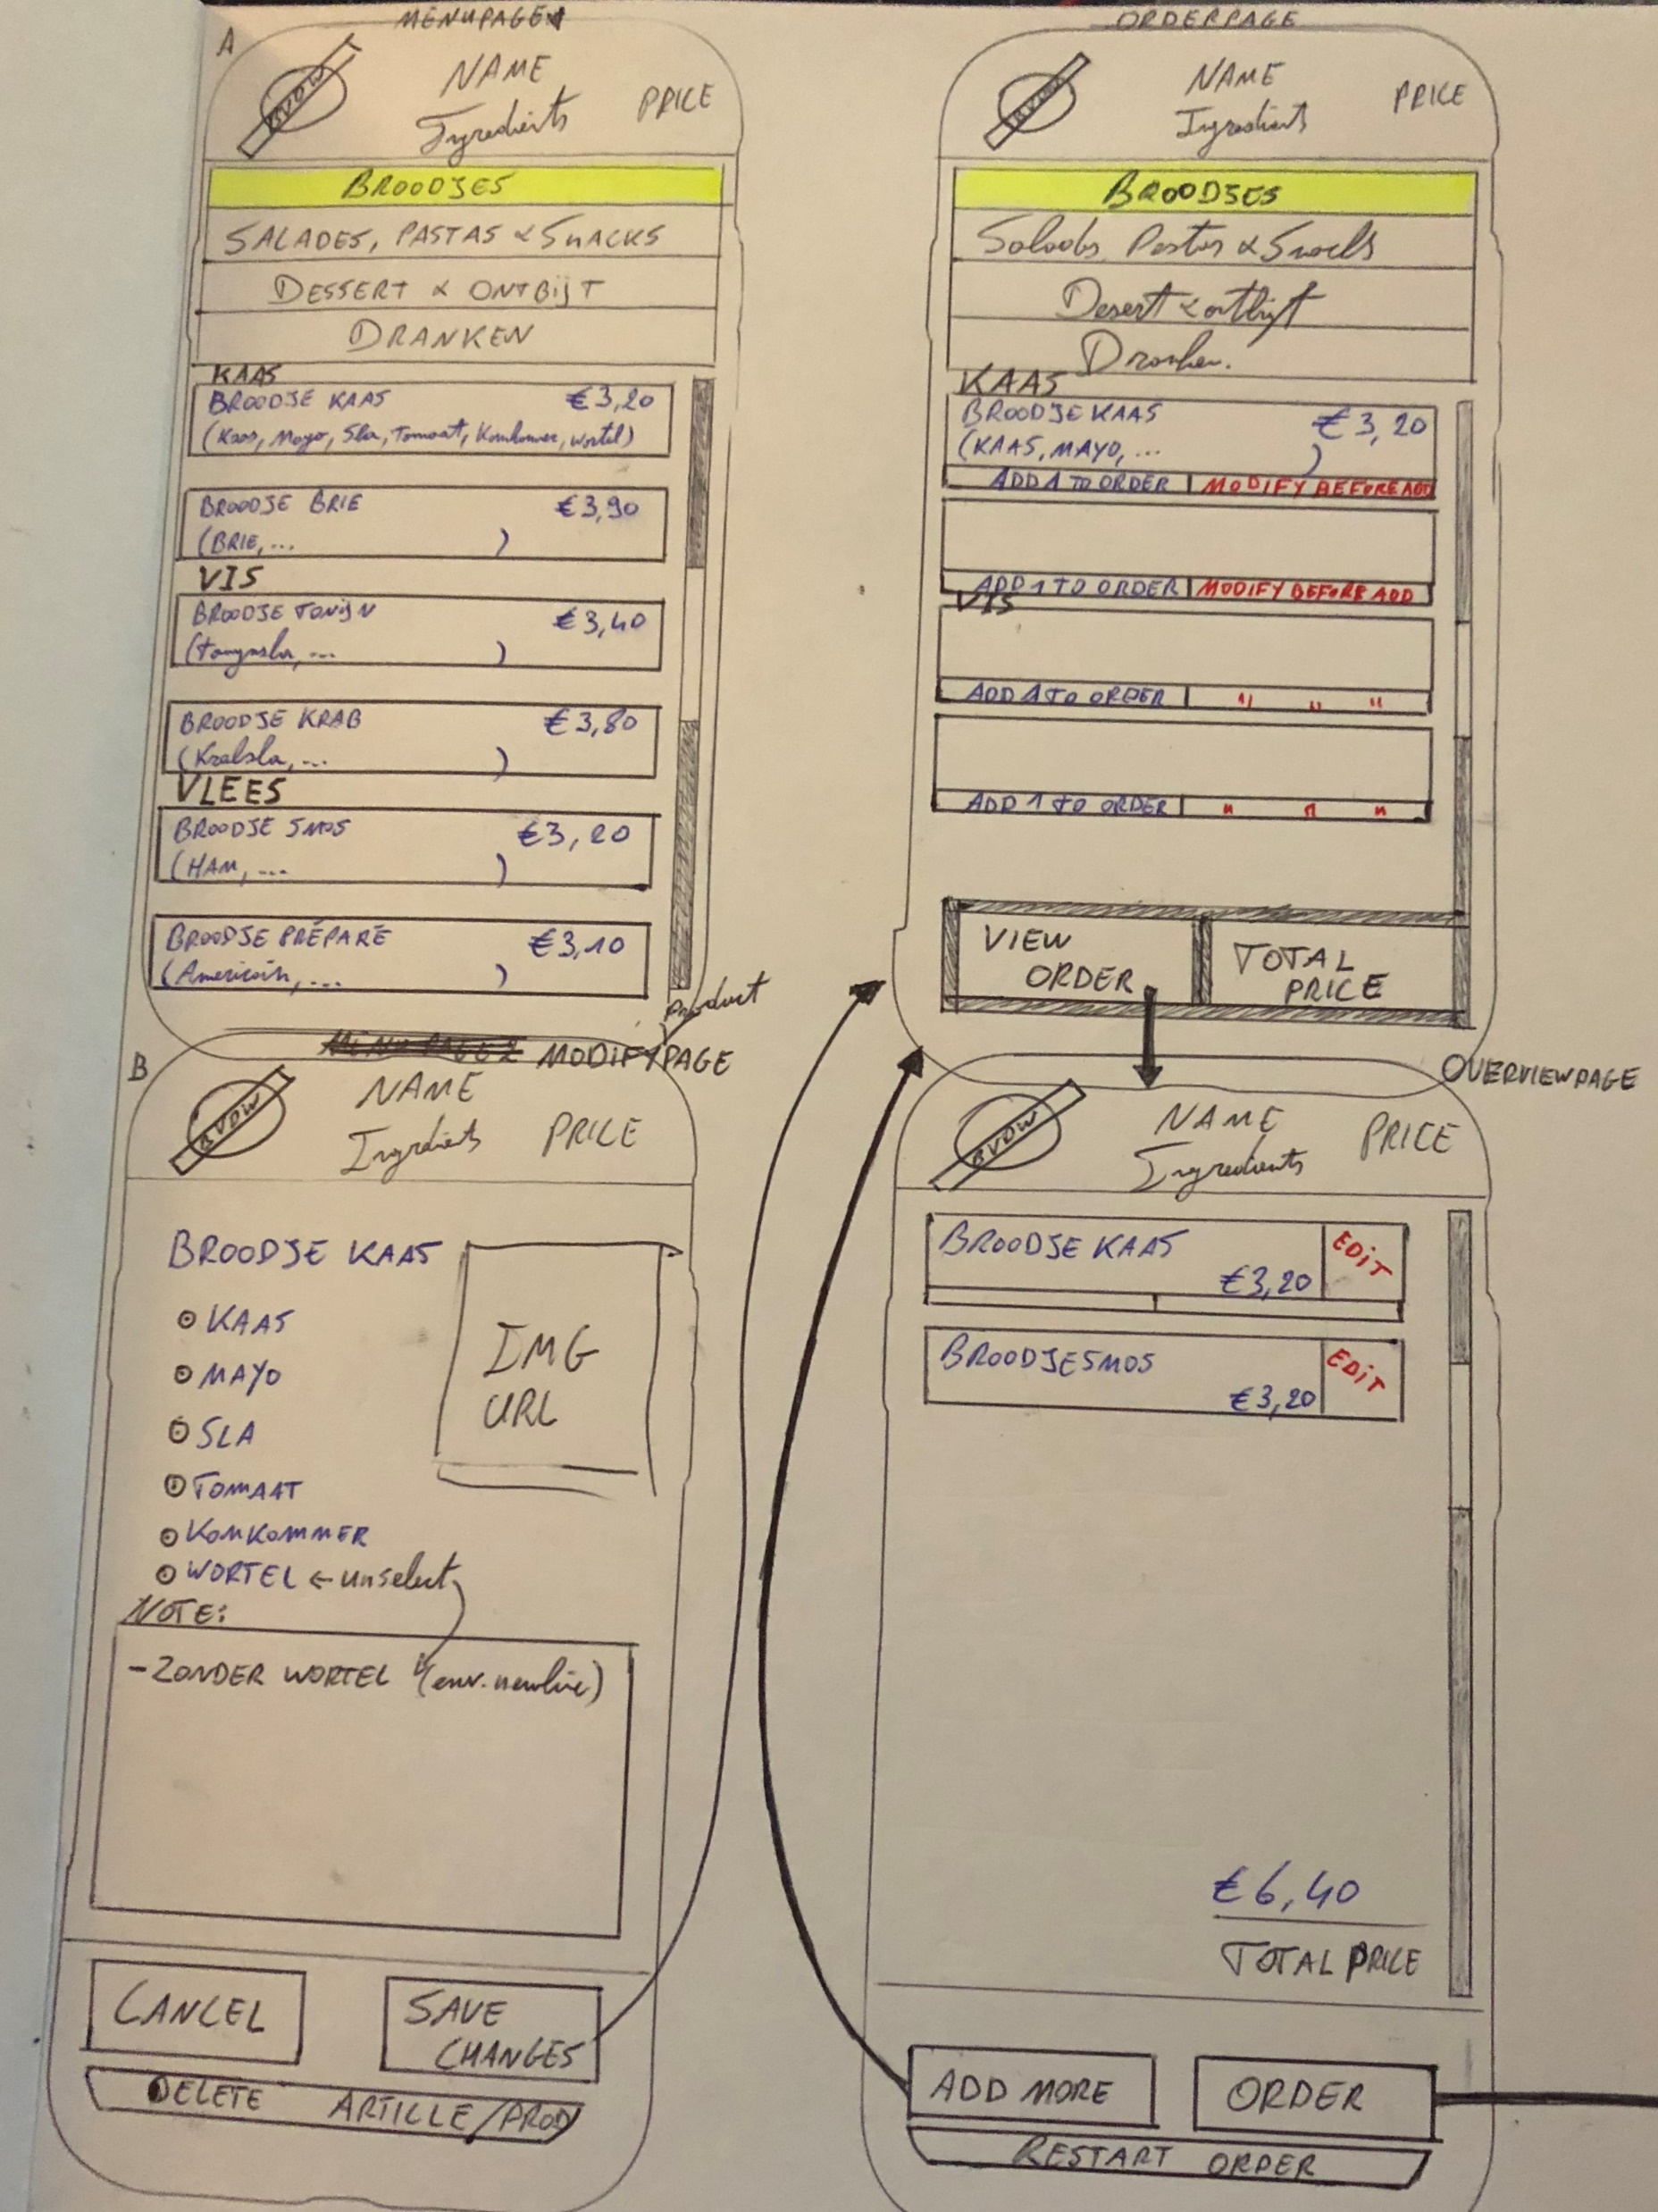 A
MENUPAGE
BVDW
NAME
Ingredients
PRICE
BROODJES
SALADES, PASTAS & SNACKS
DESSERT & ONTBIJT
DRANKEN
KAAS
BROODJE KAAS €3,20
(Kaas, Mayo, Sla, Tomaat, Komkommer, wortel)
BROODJE BRIE €3,90
(BRIE, ... )
VIS
BROODJE TONIJN €3,40
( ... )
BROODJE KRAB €3,80
(Krabsla, ... )
VLEES
BROODJE SMOS €3,20
(HAM, ... )
BROODJE PRÉPARÉ €3,10
(Americain, ... )
ORDERPAGE
BVDW
NAME
Ingredients
PRICE
BROODJES
Salades, Pastas & Snacks
Desert & ontbijt
Dranken.
KAAS
BROODJE KAAS €3,20
(KAAS, MAYO, ... )
ADD 1 TO ORDER | MODIFY BEFORE ADD
ADD 1 TO ORDER | MODIFY BEFORE ADD
VIS
ADD 1 TO ORDER | " " "
ADD 1 TO ORDER | " " "
VIEW
ORDER
TOTAL
PRICE
Product
B
MENUPAGE 2 MODIFYPAGE
BVDW
NAME
Ingredients
PRICE
BROODJE KAAS
IMG
URL
KAAS
MAYO
SLA
TOMAAT
KOMKOMMER
WORTEL ← unselect
NOTE:
-ZONDER WORTEL (env.newline)
CANCEL
SAVE
CHANGES
DELETE ARTICLE/PROD
OVERVIEWPAGE
BVDW
NAME
Ingredients
PRICE
BROODJE KAAS
€3,20
EDIT
BROODJE SMOS
€3,20
EDIT
€6,40
TOTAL PRICE
ADD MORE
ORDER
RESTART ORDER